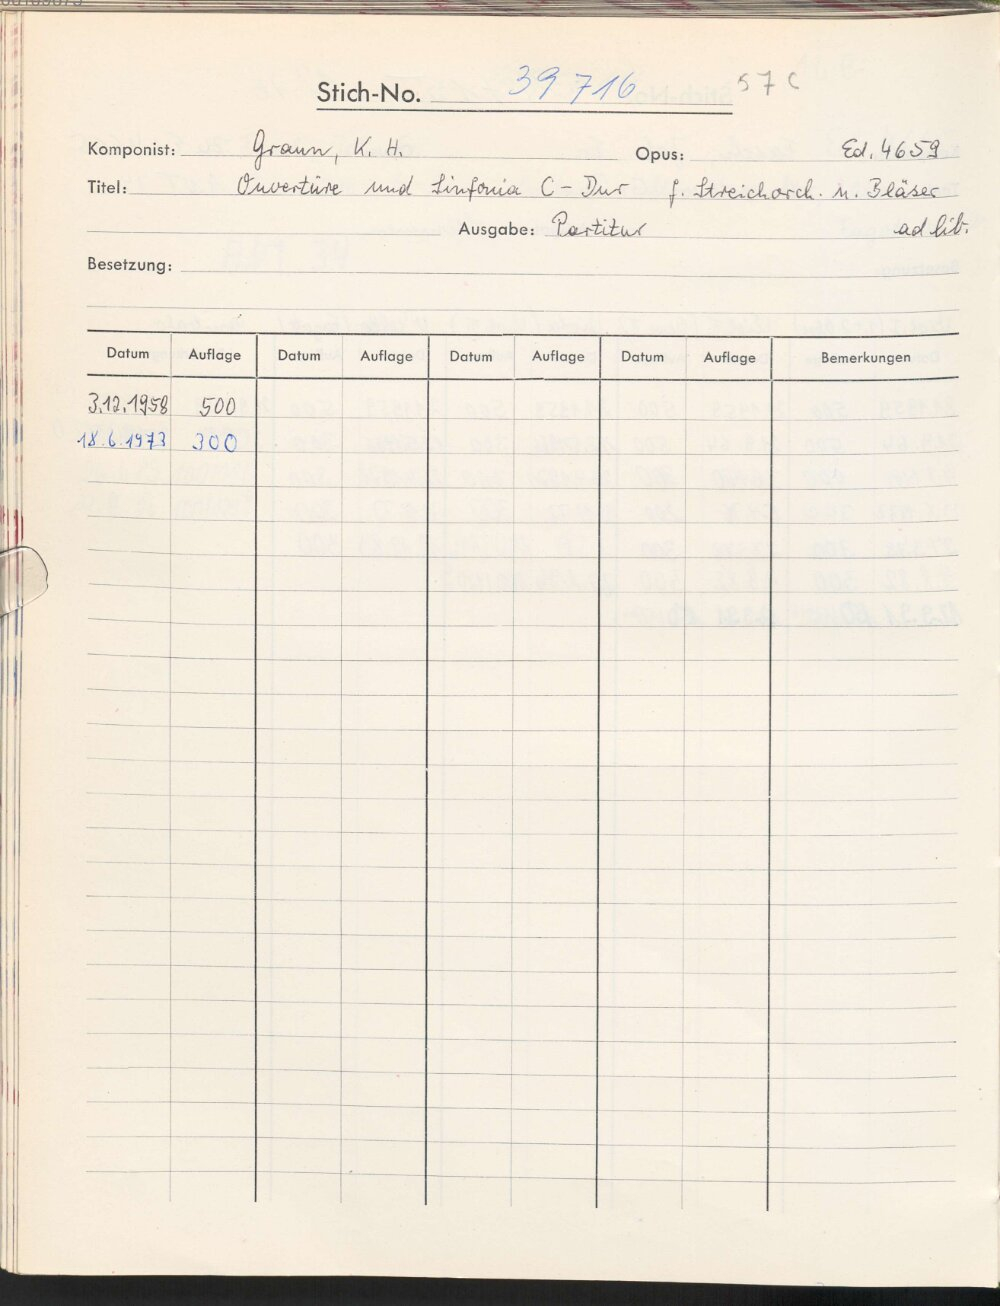 Stich-No. 39 716 57 C
Komponist: Graun, K. H. Opus: Ed. 4659
Titel: Ouvertüre und Sinfonia C-Dur f. Streichorch. u. Bläser
Ausgabe: Partitur ad lib.
Besetzung:
Datum Auflage Datum Auflage Datum Auflage Datum Auflage Bemerkungen
3.12.1958 500
18.6.1973 300